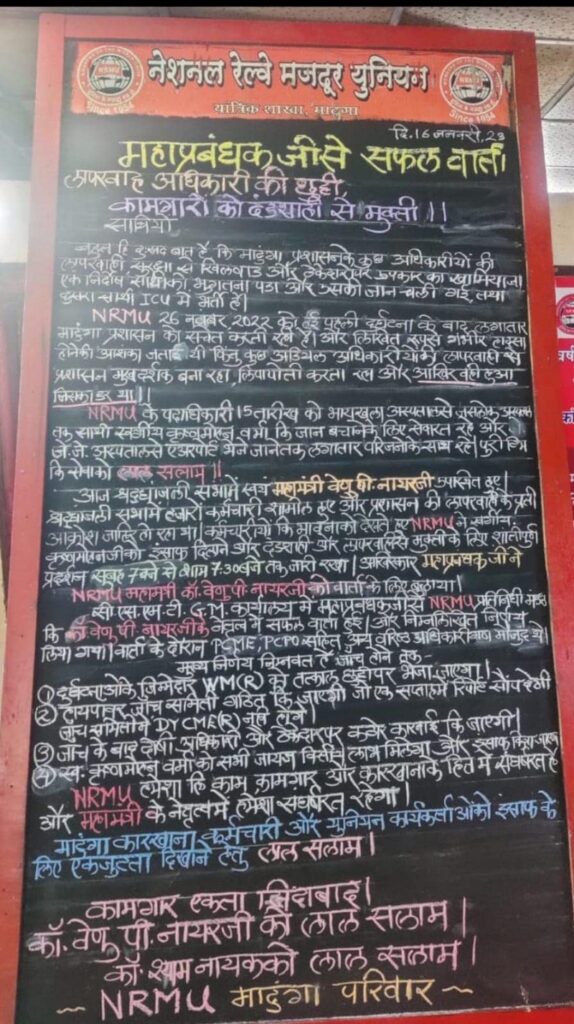 नेशनल रेल्वे मजदूर युनियन
NRMU
Since 1954
NRMU
Since 1954
यांत्रिक शाखा, माटुंगा
दि.16 जनवरी, 23
महाप्रबंधक जीसे सफल वार्ता।
लापरवाह अधिकारी की छुट्टी,
कामगारों को दंडशाही से मुक्ती ।।
साथियो
बहुत हि दुःखद बात है कि माटुंगा प्रशासनके कुछ अधिकारीयों की
लापरवाही सुरक्षा से खिलवाड और ठेकेदारोंपर उपकार का खामियाजा
एक निर्दोष साथीको भुगतना पडा और उसकी जान चली गई तथा
दुसरा साथी ICU में भर्ती है।
NRMU 26 नवंबर 2022 को हुई पहली दुर्घटना के बाद लगातार
माटुंगा प्रशासन को सचेत करती रही है। और लिखित रूपसे गंभीर हादसा
होनेकी आशंका जताई थी किंतु कुछ अडियल अधिकारीयोंकी लापरवाही से
प्रशासन मुखदर्शक बना रहा, लिपापोती करता रहा और आखिर वही हुआ
जिसका डर था।।
NRMU के पदाधिकारी 15 तारीख को भायखला अस्पतालसे
तक साथी स्वर्गीय कृष्णमोहन वर्मा कि जान बचानेके लिए सेवारत रहे और
जे.जे. अस्पतालसे एअरपोर्ट भेजे जानेतक लगातार परिजनोके साथ रहे। पुरी टिम
कि सेवाको लाल सलाम ।।
आज श्रद्धांजली सभामें स्वयं महामंत्री वेणु पी. नायरजी उपस्थित हुए।
श्रद्धांजली सभामें हजारों कर्मचारी शामील हुए और प्रशासन की लापरवाही के प्रती
आक्रोश जाहिर हो रहा था। कर्मचारीयों कि भावनाको देखते हुए NRMU ने स्वर्गीय
कृष्णमोहनजीको इंसाफ दिलाने और दंडशाही और लापरवाहीसे मुक्ती के लिए शांतीपुर्ण
प्रदर्शन सुबह 7 बजे से शाम 7.30 बजे तक जारी रखा। आखिरकार महाप्रबंधक जी ने
NRMU महामंत्री कॉ. वेणु. पी. नायरजी को वार्ता के लिए बुलाया।
सी.एस.एम.टी. G.M. कार्यालय में महाप्रबंधकजीसे NRMU प्रतिनिधी मंडल
कि कॉ वेणु.पी. नायरजीके नेतृत्व में सफल वार्ता हुई। और निम्नलिखित निर्णय
लिया गया। वार्ता के दौरान PCME, PCPO सहित अन्य वरिष्ठ अधिकारीगण मौजुद थे।
मुख्य निर्णय निम्नवत है जाँच होने तक -
① दुर्घटनाओंके जिम्मेदार WM(R) को तत्काल छुट्टीपर भेजा जाएगा।
② त्रयस्थ जाँच समिती गठित कि जाएगी जो एक सप्ताहमें रिपोर्ट सौंप देगी
जाँच समितीमें DY CMM(R) नहीं होंगे।
③ जाँच के बाद दोषी अधिकारी और ठेकेदारपर कठोर कारवाई कि जाएगी।
④ स्व. कृष्णमोहन वर्मा को सभी जायज लाभ मिलेगा और इंसाफ किया जाएगा
NRMU हमेशा हि काम, कामगार और कारखानाके हित में संघर्षरत है
और महामंत्री के नेतृत्वमें हमेशा संघर्षरत रहेगा।
माटुंगा कारखाना कर्मचारी और युनियन कार्यकर्ताओंको इंसाफ के
लिए एकजुटता दिखाने हेतु लाल सलाम।
कामगार एकता जिंदाबाद।
कॉ. वेणु पी. नायरजी को लाल सलाम।
कॉ. श्याम नायकको लाल सलाम।
~ NRMU माटुंगा परिवार ~